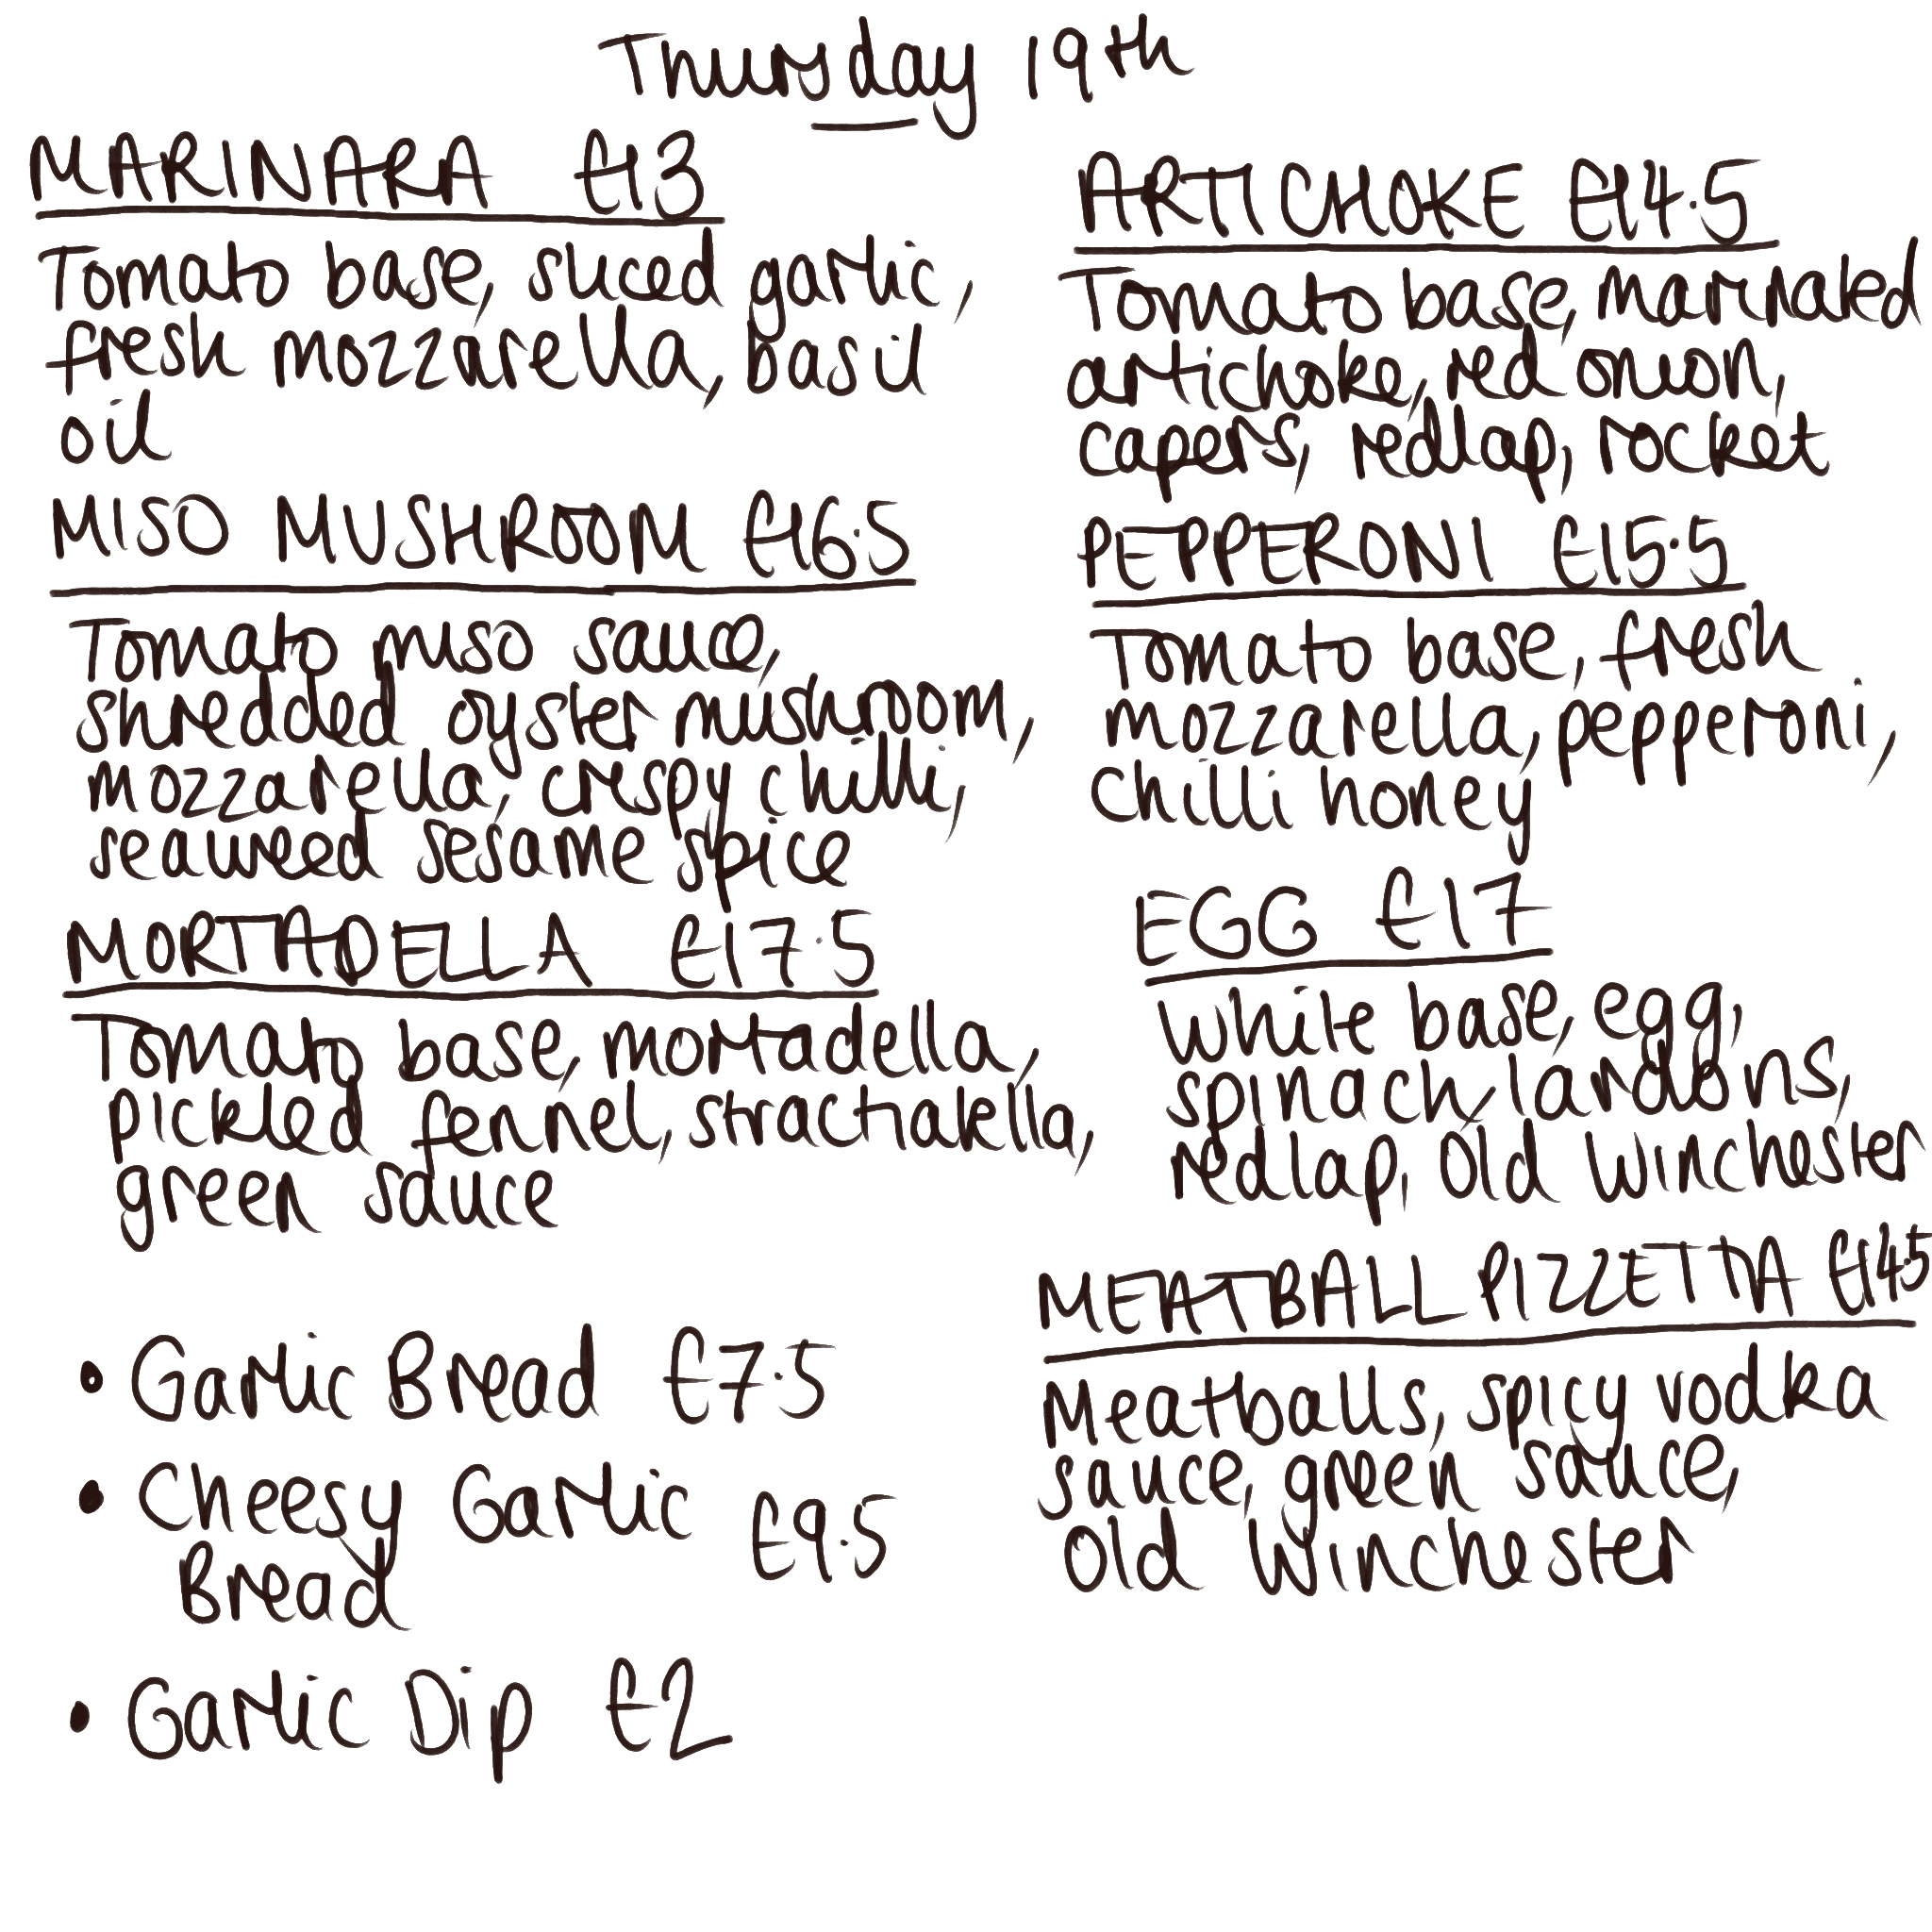 Thursday 19th
MARINARA £13
Tomato base, sliced garlic,
fresh mozzarella, basil
oil
MISO MUSHROOM £16.5
Tomato miso sauce,
shredded oyster mushroom,
mozzarella, crispy chilli,
seaweed sesame spice
MORTADELLA £17.5
Tomato base, mortadella,
pickled fennel, strachatella,
green sauce
• Garlic Bread £7.5
• Cheesy Garlic £9.5
Bread
• Garlic Dip £2
ARTICHOKE £14.5
Tomato base, marinated
artichoke, red onion,
capers, redlap, rocket
PEPPERONI £15.5
Tomato base, fresh
mozzarella, pepperoni,
chilli honey
EGG £17
White base, egg,
spinach, lardons,
redlap, Old Winchester
MEATBALL PIZZETTA £14.5
Meatballs, spicy vodka
sauce, green sauce,
Old Winchester